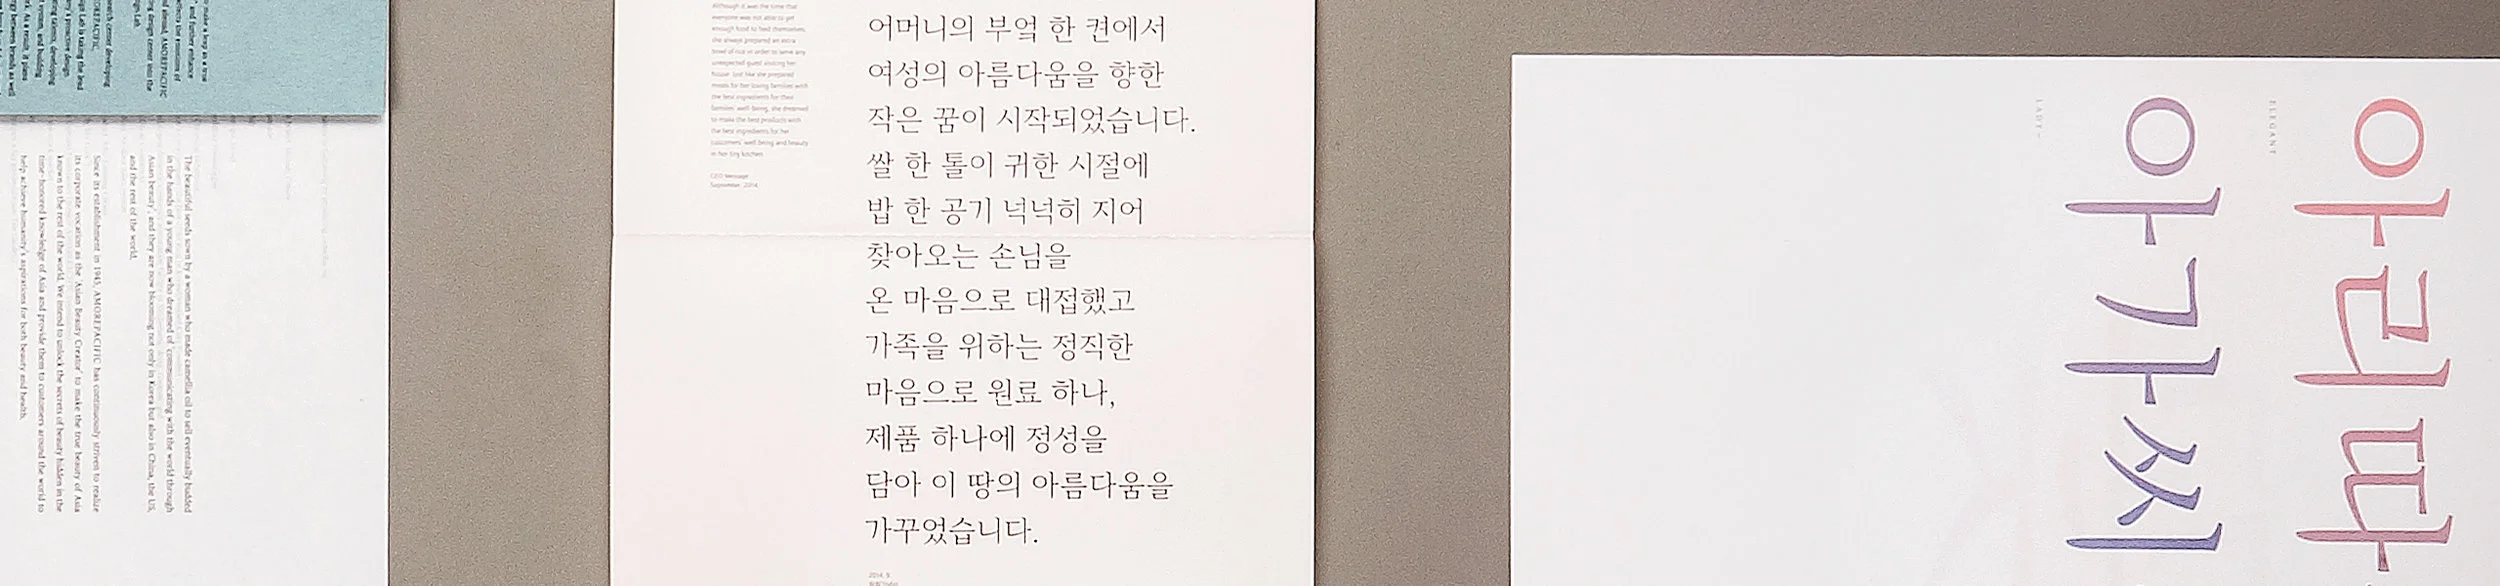 to make a leap as a true
and further enhance
AMOREPACIFIC
design center into the
The beautiful seeds sown by a woman who made camellia oil to sell eventually budded
in the hands of a young man who dreamed of 'communicating with the world through
Asian beauty', and they are now blooming not only in Korea but also in China, the US,
and the rest of the world.
Since its establishment in 1945, AMOREPACIFIC has continuously striven to realize
its corporate vocation as the 'Asian Beauty Creator' to make the true beauty of Asia
known to the rest of the world. We intend to unlock the secrets of beauty hidden in the
time-honored knowledge of Asia and provide them to customers around the world to
help achieve humanity's aspirations for both beauty and health.
Although it was the time that
everyone was not able to get
enough food to feed themselves,
she always prepared an extra
bowl of rice in order to serve any
unexpected guest visiting her
house. Just like she prepared
meals for her loving families with
the best ingredients for their
families' well-being, she dreamed
to make the best products with
the best ingredients for her
customers' well-being and beauty
in her tiny kitchen.
CEO Message
September, 2014
어머니의 부엌 한 켠에서
여성의 아름다움을 향한
작은 꿈이 시작되었습니다.
쌀 한 톨이 귀한 시절에
밥 한 공기 넉넉히 지어
찾아오는 손님을
온 마음으로 대접했고
가족을 위하는 정직한
마음으로 원료 하나,
제품 하나에 정성을
담아 이 땅의 아름다움을
가꾸었습니다.
2014. 9.
아리따
ELEGANT
아가씨
LADY